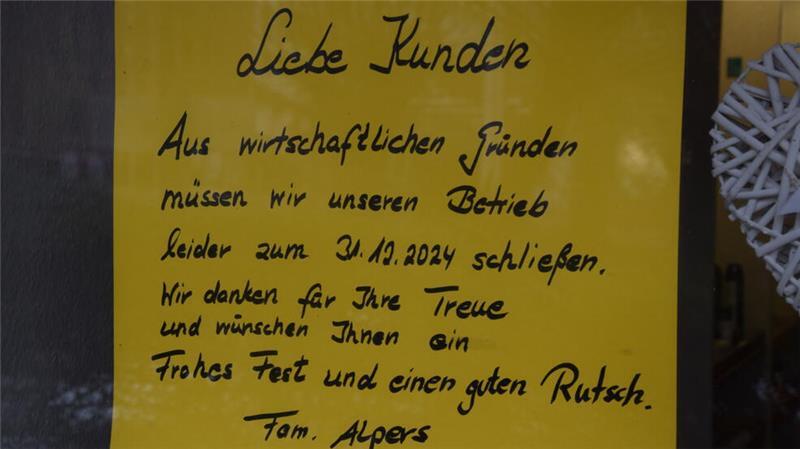 Liebe Kunden
Aus wirtschaftlichen Gründen
müssen wir unseren Betrieb
leider zum 31.12.2024 schließen.
Wir danken für Ihre Treue
und wünschen Ihnen ein
Frohes Fest und einen guten Rutsch.
Fam. Alpers